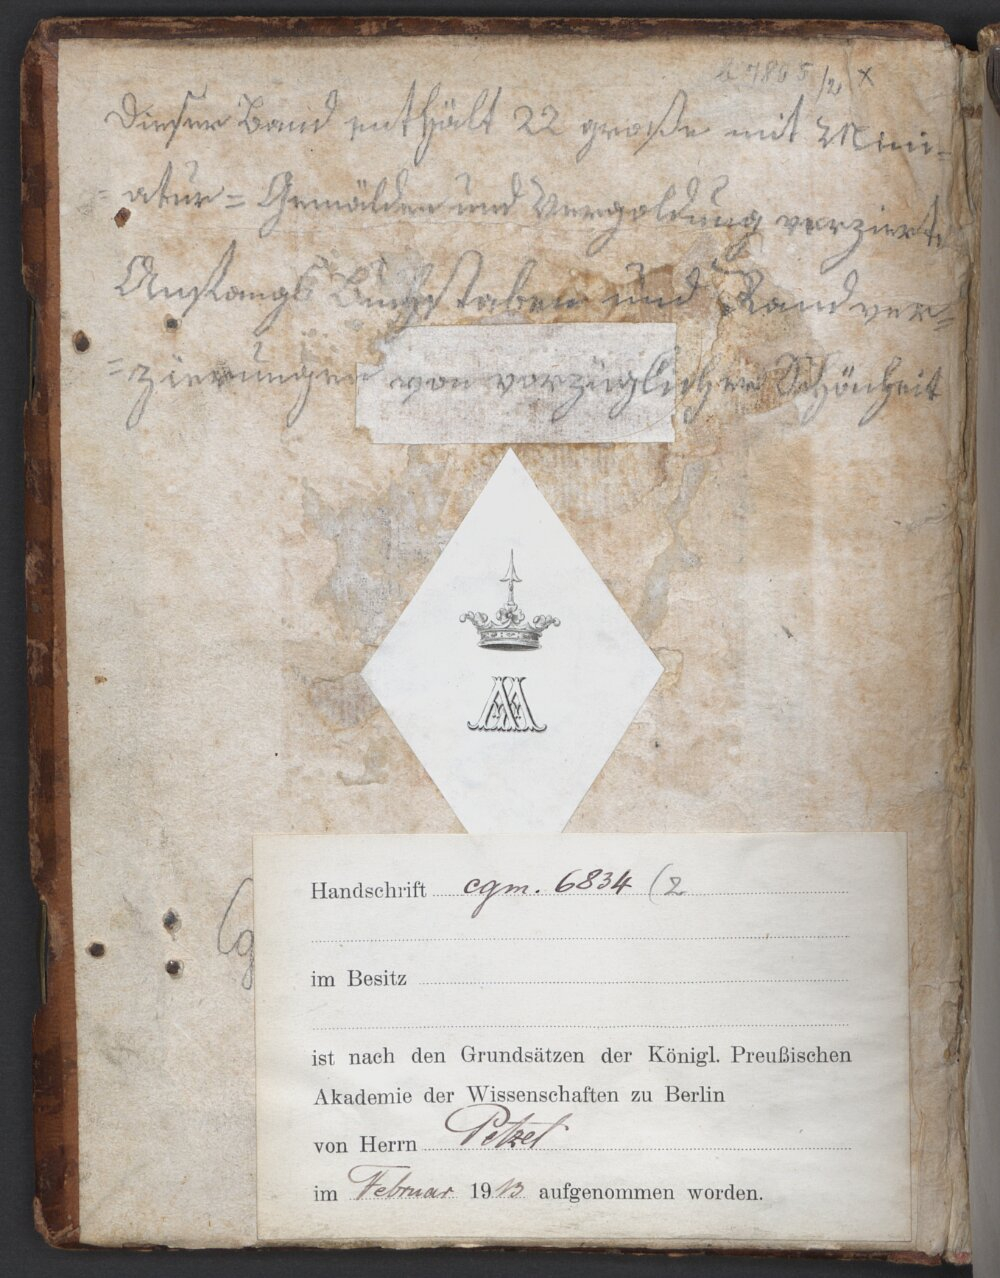 Dieser Band enthält 22 große mit Mini=
=atur= Gemälden und Vergoldung verzierte
Anfangs Buchstaben und Randver=
=zierungen von vorzüglicher Schönheit
Handschrift cgm. 6834 (2
im Besitz
ist nach den Grundsätzen der Königl. Preußischen
Akademie der Wissenschaften zu Berlin
von Herrn Petzet
im Februar 1913 aufgenommen worden.